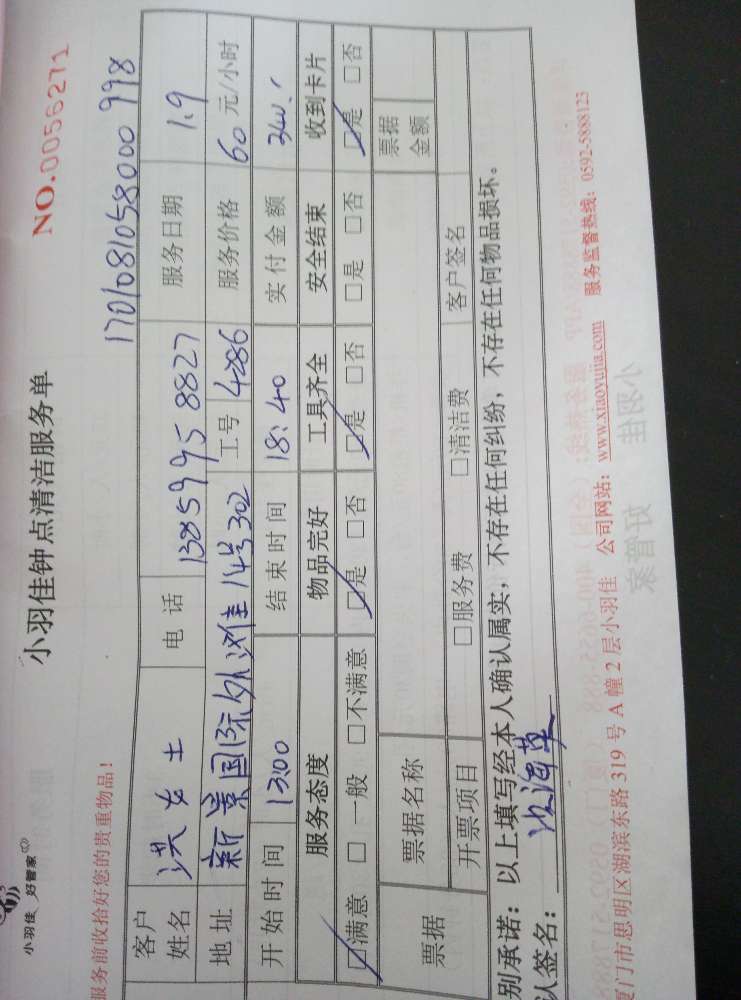 小羽佳 好管家
小羽佳钟点清洁服务单
NO.0056271
服务前收拾好您的贵重物品!
1701081058000998
客户姓名 洪女士 电话 13859958827 服务日期 1.9
地址 新景国际外滩14号302 工号 4286 服务价格 60 元/小时
开始时间 13:00 结束时间 18:40 实付金额 340.
服务态度 物品完好 工具齐全 安全结束 收到卡片
☑满意 □一般 □不满意 ☑是 □否 ☑是 □否 □是 □否 ☑是 □否
票据 票据名称 票据金额
开票项目 □服务费 □清洁费 客户签名
别承诺:以上填写经本人确认属实,不存在任何纠纷,不存在任何物品损坏。
认签名:
厦门市思明区湖滨东路 319 号 A 幢 2 层小羽佳 公司网站:www.xiaoyujia.com 服务监督热线:0592-5888123